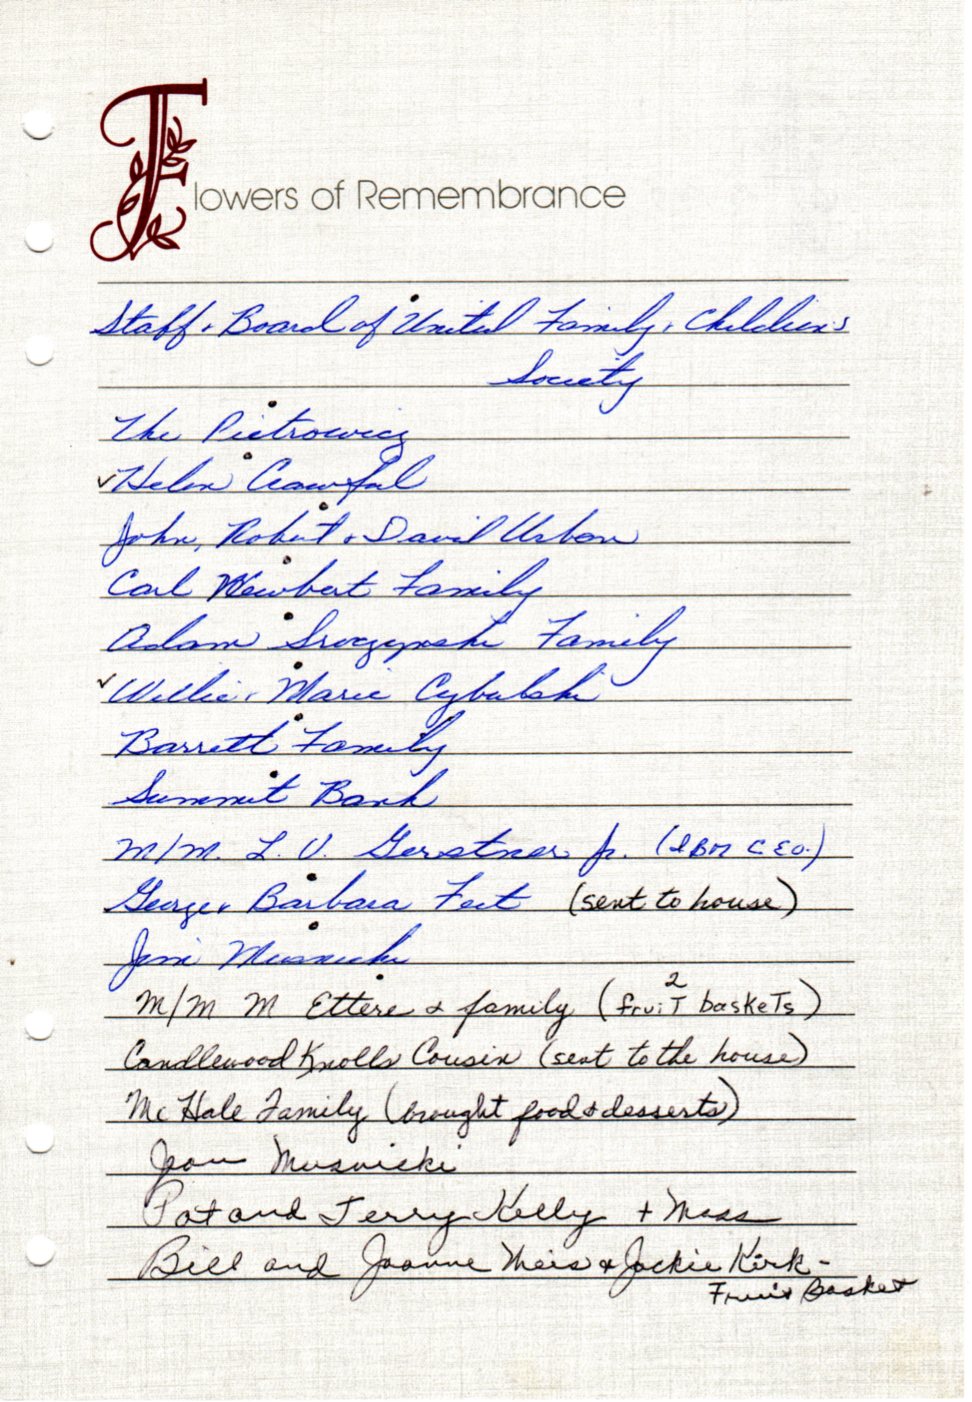 Flowers of Remembrance
Staff & Board of United Family & Children's
Society
The Pietrowicz
Helen Crawford
John, Robert & David Urban
Carl Newbert Family
Adam Sroczynski Family
Willie & Marie Cybulski
Barrett Family
Summit Bank
M/M. L. V. Gerstner Jr. (IBM CEO.)
George & Barbara Feit (sent to house)
Jim Musnicki
M/M M Ettere & family (2 fruit baskets)
Candlewood Knolls Cousin (sent to the house)
McHale Family (brought food & desserts)
Jean Musnicki
Pat and Terry Kelly + Mass
Bill and Joanne Meis & Jackie Kirk -
Fruit Basket